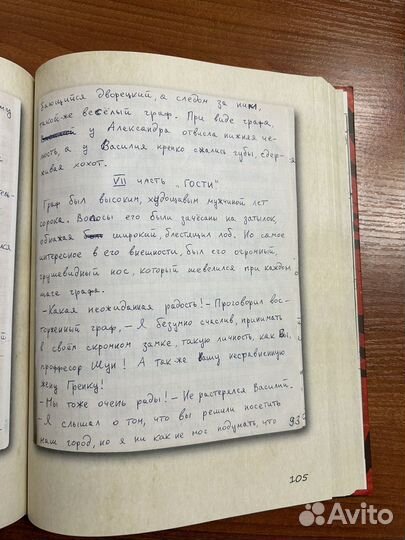 бающийся дворецкий, а следом за ним,
такой-же весёлый граф. При виде графа,
у Александра отвисла нижняя че-
люсть, а у Василия крепко сжались губы, сдер-
живая хохот.
VII часть „Гости"
Граф был высоким, худощавым мужчиной лет
сорока. Волосы его были зачёсаны на затылок,
обнажая широкий, блестящий лоб. Но самое
интересное в его внешности, был его огромный,
грушевидный нос, который шевелился при каждом
шаге графа.
-Какая неожиданная радость! - Проговорил вос-
торженный граф, - Я безумно счаслив, принимать
в своём скромном замке, такую личность, как Вы,
профессор Шуи! А так же вашу несравненную
жену Гренку!
-Мы тоже очень рады! - Не растерялся Василий.
- Я слышал о том, что вы решили посетить
наш город, но я ни как не мог подумать, что
93
105
Avito